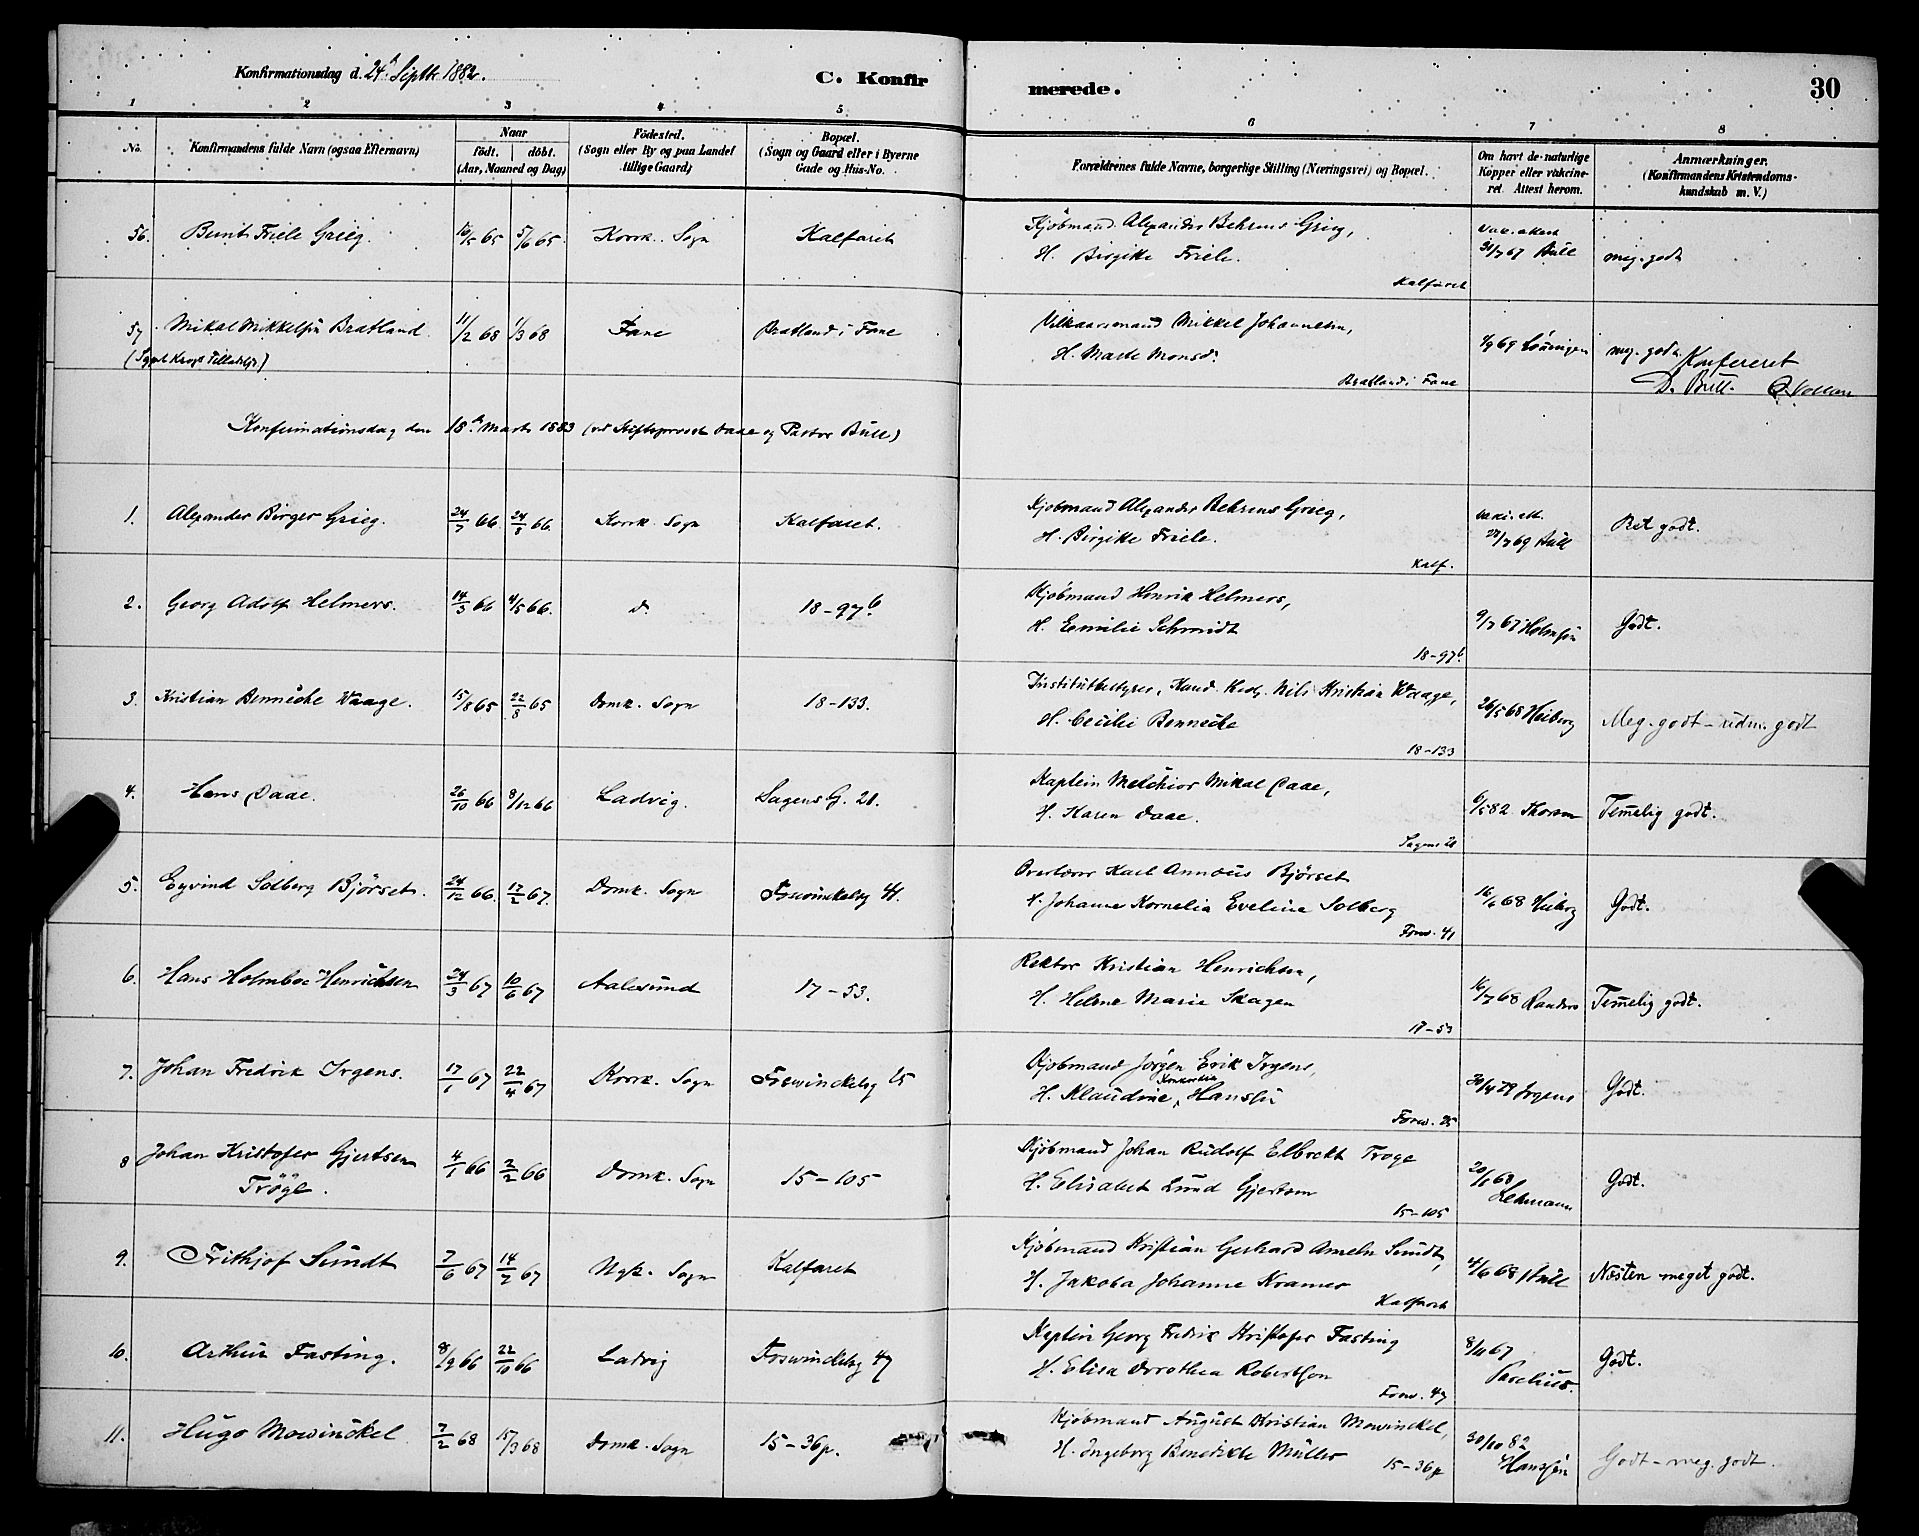 Konfirmationsdag d. 24de Septbr 1882.
C. Konfirmerede.
30
1 2 3 4 5 6 7 8
No. Konfirmandens fulde Navn (ogsaa Efternavn) Naar født. døbt. (Aar, Maaned og Dag) Födested. (Sogn eller By og paa Landet tillige Gaard) Bopæl. (Sogn og Gaard eller i Byerne Gade og Hus-No. Forældrenes fulde Navne, borgerlige Stilling (Næringsvei) og Bopæl. Om havt de naturlige Kopper eller vakcineret. Attest herom. Anmærkninger. (Konfirmandens Kristendomskundskab m. V.)
56. Bernt Friele Grieg. 10/5 65 5/6 65. Korsk. Sogn Kalfaret Kjöbmand Alexander Behrens Grieg,
H. Birgitte Friele. Kalfaret
Vak. attest 31/7 67 Bull meg. godt
57 Mikal Mikkelsen Bratland. 11/2 68 1/3 68 Fane Bratland i Fane Vilkaarsmand Mikkel Johannesen,
H. Marte Monsdr Bratland i Fane
1/9 69 meg. godt
Konfereret
D. Bull.
Konfirmationsdag den 18de Marts 1883 (ved Stiftsprovst Daae og Pastor Bull)
1. Alexander Birger Grieg. 24/7 66. 24/8 66. Korsk. Sogn Kalfaret. Kjöbmand Alexander Behrens Grieg,
H. Birgitte Friele. Kalf.
vakc. att. 22/7 69 Bull Ret godt.
2. Georg Adolf Helmers. 14/3 66 4/5 66. do 18-97b. Kjöbmand Henrik Helmers,
H. Emilie Schmidt 18-97b.
9/7 67 Holmsen Godt.
3. Kristian Benneche Waage. 15/8 65 22/8 65 Domk. Sogn 18-133. Institutbestyrer, Kand. Nils Kristian Waage,
H. Cecilie Benneche 18-133
26/5 68 Heiberg Meg. godt - udm. godt
4. Hans Daae. 26/10 66 8/12 66 Ladvig. Sagens G. 21. Kaptein Melchior Mikal Daae,
H. Karen Daae. Sagens 21
6/5 82 Temelig godt.
5. Eyvind Solberg Bjørset. 24/12 66. 17/2 67. Domk. Sogn Foswinckelsg 41. Overlærer Karl Annæus Bjørset
H. Johanne Kornelia Eveline Solberg Fosw. 41
16/6 68 Heiberg Godt.
6. Hans Holmboe Henrichsen 24/3 67 10/6 67 Aalesund 17-53. Rektor Kristian Henrichsen,
H. Helene Marie Skagen 17-53
16/7 68 Randers Temelig godt.
7. Johan Fredrik Irgens. 17/1 67 22/4 67 Korsk. Sogn Foswinckelsg 25 Kjöbmand Jørgen Erik Irgens,
H. Klaudine Konkordia Hansen Fosw. 25
30/4 79 Irgens Godt.
8 Johan Kristofer Gjertsen 4/1 66 2/2 66 Domk. Sogn 15-105 Kjöbmand Johan Rudolf Elbrekt Troye
Tröye. H. Elisabet Lund Gjertsen 15-105
20/1 68 Lehmann Godt.
9. Frithjof Sundt 7/6 67 14/7 67 Nyk. Sogn Kalfaret Kjöbmand Kristian Gerhard Ameln Sundt,
H. Jakoba Johanne Kramer Kalfaret
4/6 68 Bull Næsten meget godt.
10. Arthur Fasting. 8/9 66 22/10 66 Ladvig Foswinckelsg 47 Kaptein Georg Fredrik Kristofer Fasting
H. Elisa Dorothea Robertson Fosw. 47
8/11 67 Godt.
11. Hugo Mowinckel 7/2 68 15/3 68 Domk. Sogn 15-36p. Kjöbmand August Kristian Mowinckel,
H. Ingeborg Benedikte Müller 15-36p
30/10 82 Hanssen Godt - meg. godt.